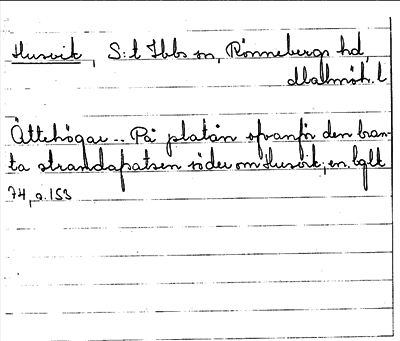 Husvik, S:t Ibbs sn, Rönnebergs hd,
Malmöh. l.
Ättehögar.. På platån ofvanför den bran-
ta strandafsatsen söder om Husvik; en. bglt
74, s. 153